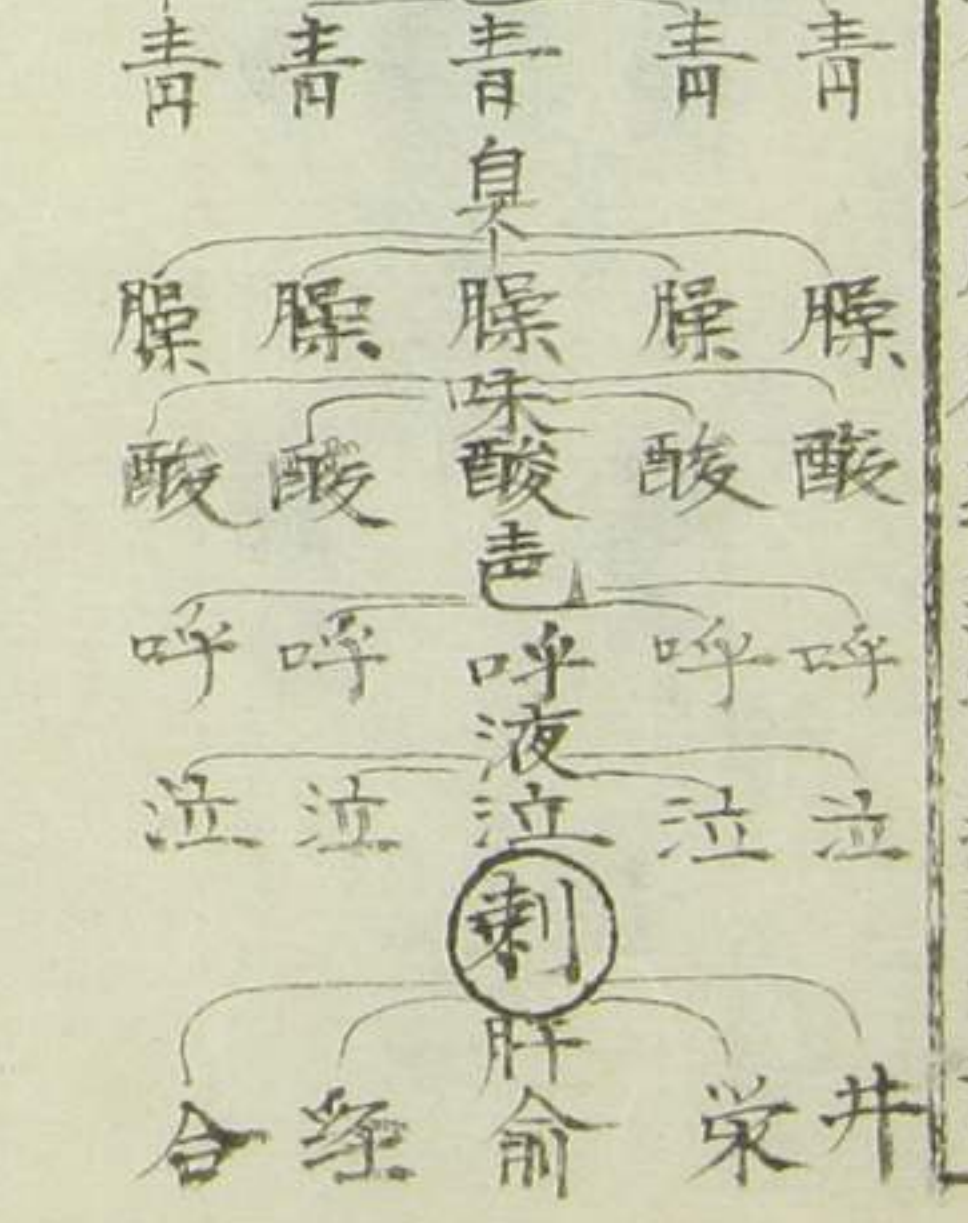 青 青 青 青 青
臭
臊 臊 臊 臊 臊
味
酸 酸 酸 酸 酸
声
呼 呼 呼 呼 呼
液
泣 泣 泣 泣 泣
刺
肝
井 栄 俞 経 合